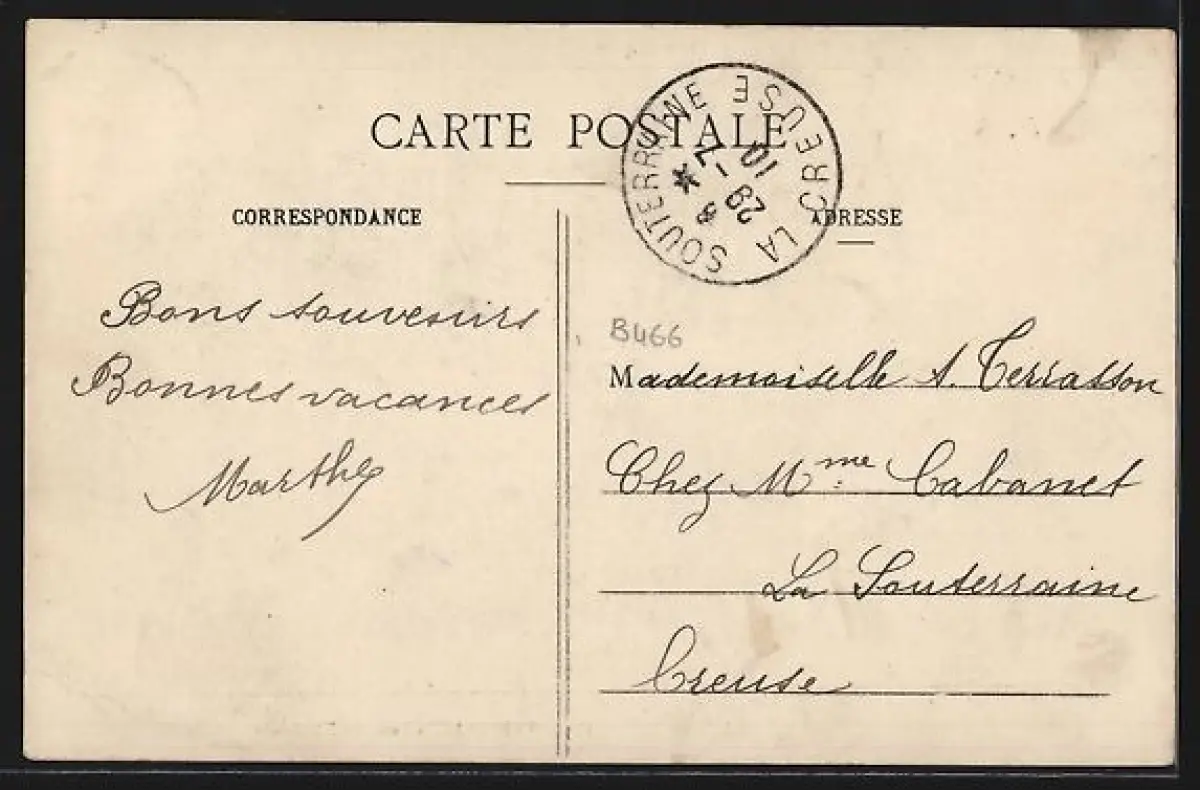 CARTE POSTALE
CORRESPONDANCE
Bons souvenirs
Bonnes vacances
Marthe
LA SOUTERRAINE CREUSE
* 29 -7 10 *
ADRESSE
B466
Mademoiselle S. Terrasson
Chez Mme Cabanet
La Souterraine
Creuse